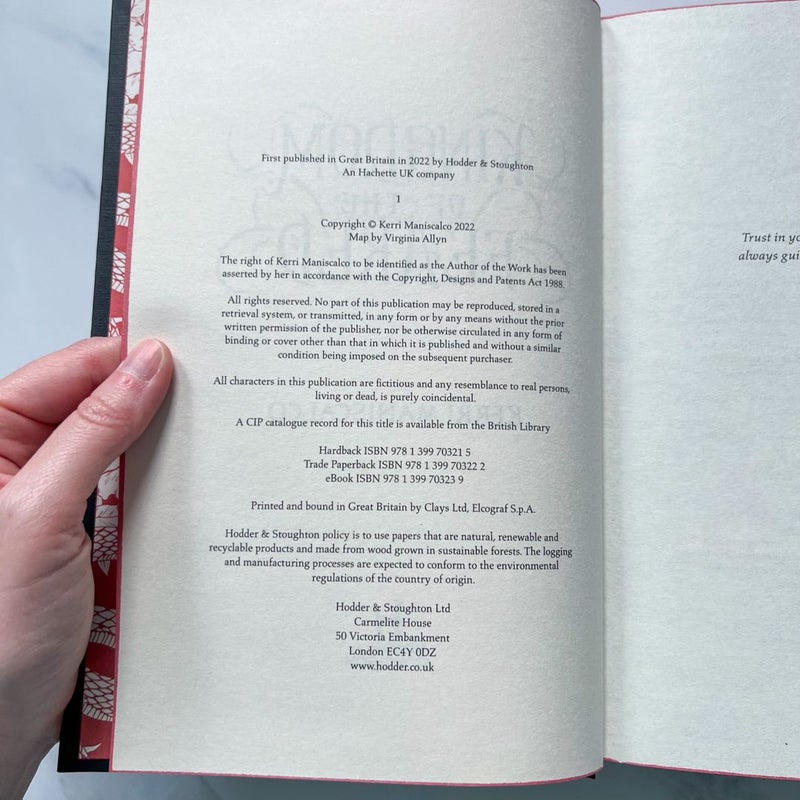 First published in Great Britain in 2022 by Hodder & Stoughton
An Hachette UK company
1
Copyright © Kerri Maniscalco 2022
Map by Virginia Allyn
The right of Kerri Maniscalco to be identified as the Author of the Work has been
asserted by her in accordance with the Copyright, Designs and Patents Act 1988.
All rights reserved. No part of this publication may be reproduced, stored in a
retrieval system, or transmitted, in any form or by any means without the prior
written permission of the publisher, nor be otherwise circulated in any form of
binding or cover other than that in which it is published and without a similar
condition being imposed on the subsequent purchaser.
All characters in this publication are fictitious and any resemblance to real persons,
living or dead, is purely coincidental.
A CIP catalogue record for this title is available from the British Library
Hardback ISBN 978 1 399 70321 5
Trade Paperback ISBN 978 1 399 70322 2
eBook ISBN 978 1 399 70323 9
Printed and bound in Great Britain by Clays Ltd, Elcograf S.p.A.
Hodder & Stoughton policy is to use papers that are natural, renewable and
recyclable products and made from wood grown in sustainable forests. The logging
and manufacturing processes are expected to conform to the environmental
regulations of the country of origin.
Hodder & Stoughton Ltd
Carmelite House
50 Victoria Embankment
London EC4Y 0DZ
www.hodder.co.uk
Trust in
always